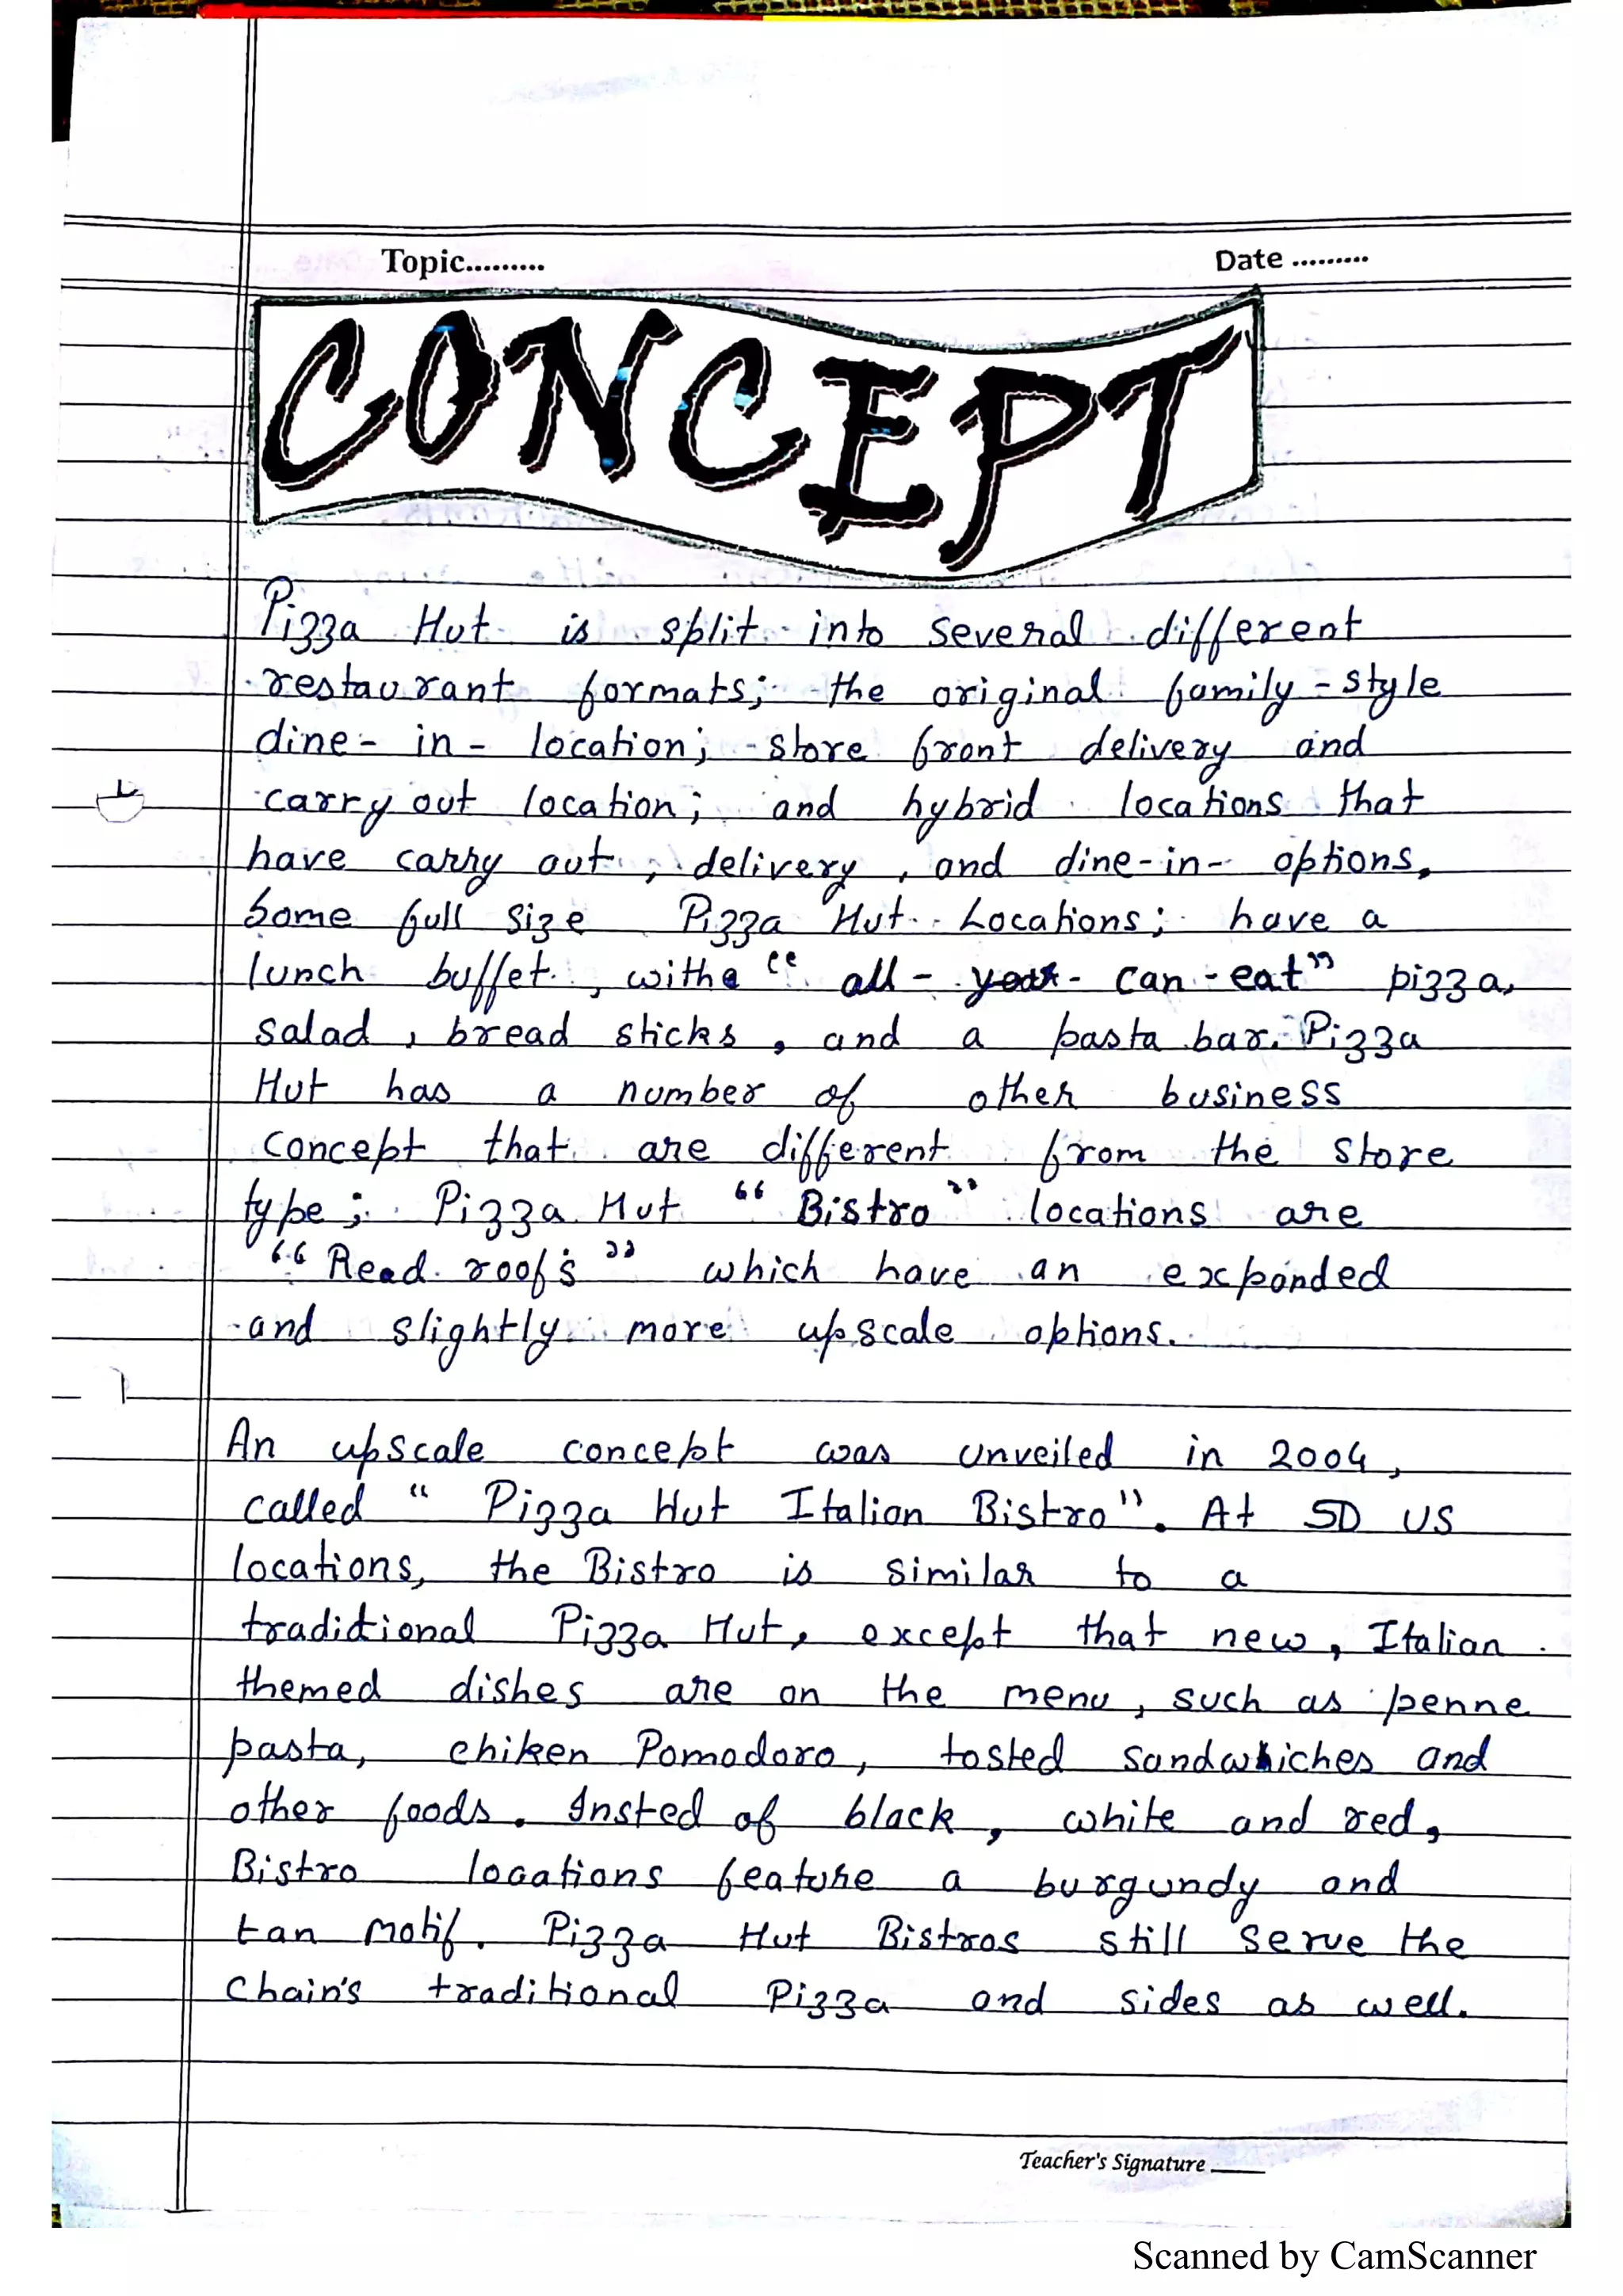 Topic.........
Date .........
CONCEPT
Pizza Hut is split into several different
restaurant formats; the original family-style
dine-in-location; store front delivery and
carry out location; and hybrid locations that
have carry out, delivery, and dine-in- options.
Some full size Pizza Hut Locations; have a
lunch buffet, with a "all-you-can-eat" pizza,
salad, bread sticks, and a pasta bar. Pizza
Hut has a number of other business
concept that are different from the store
type; Pizza Hut "Bistro" locations are
"Read roofs" which have an exponded
and slightly more upscale options.
An upscale concept was unveiled in 2004,
called "Pizza Hut Italian Bistro". At 50 US
locations, the Bistro is similar to a
traditional Pizza Hut, except that new, Italian
themed dishes are on the menu, such as penne
pasta, chiken Pomodoro, tosted sandwhiches and
other foods. Insted of black, white and red,
Bistro locations feature a burgundy and
tan motif. Pizza Hut Bistros still serve the
chain's traditional Pizza and sides as well.
Teacher's Signature
Scanned by CamScanner